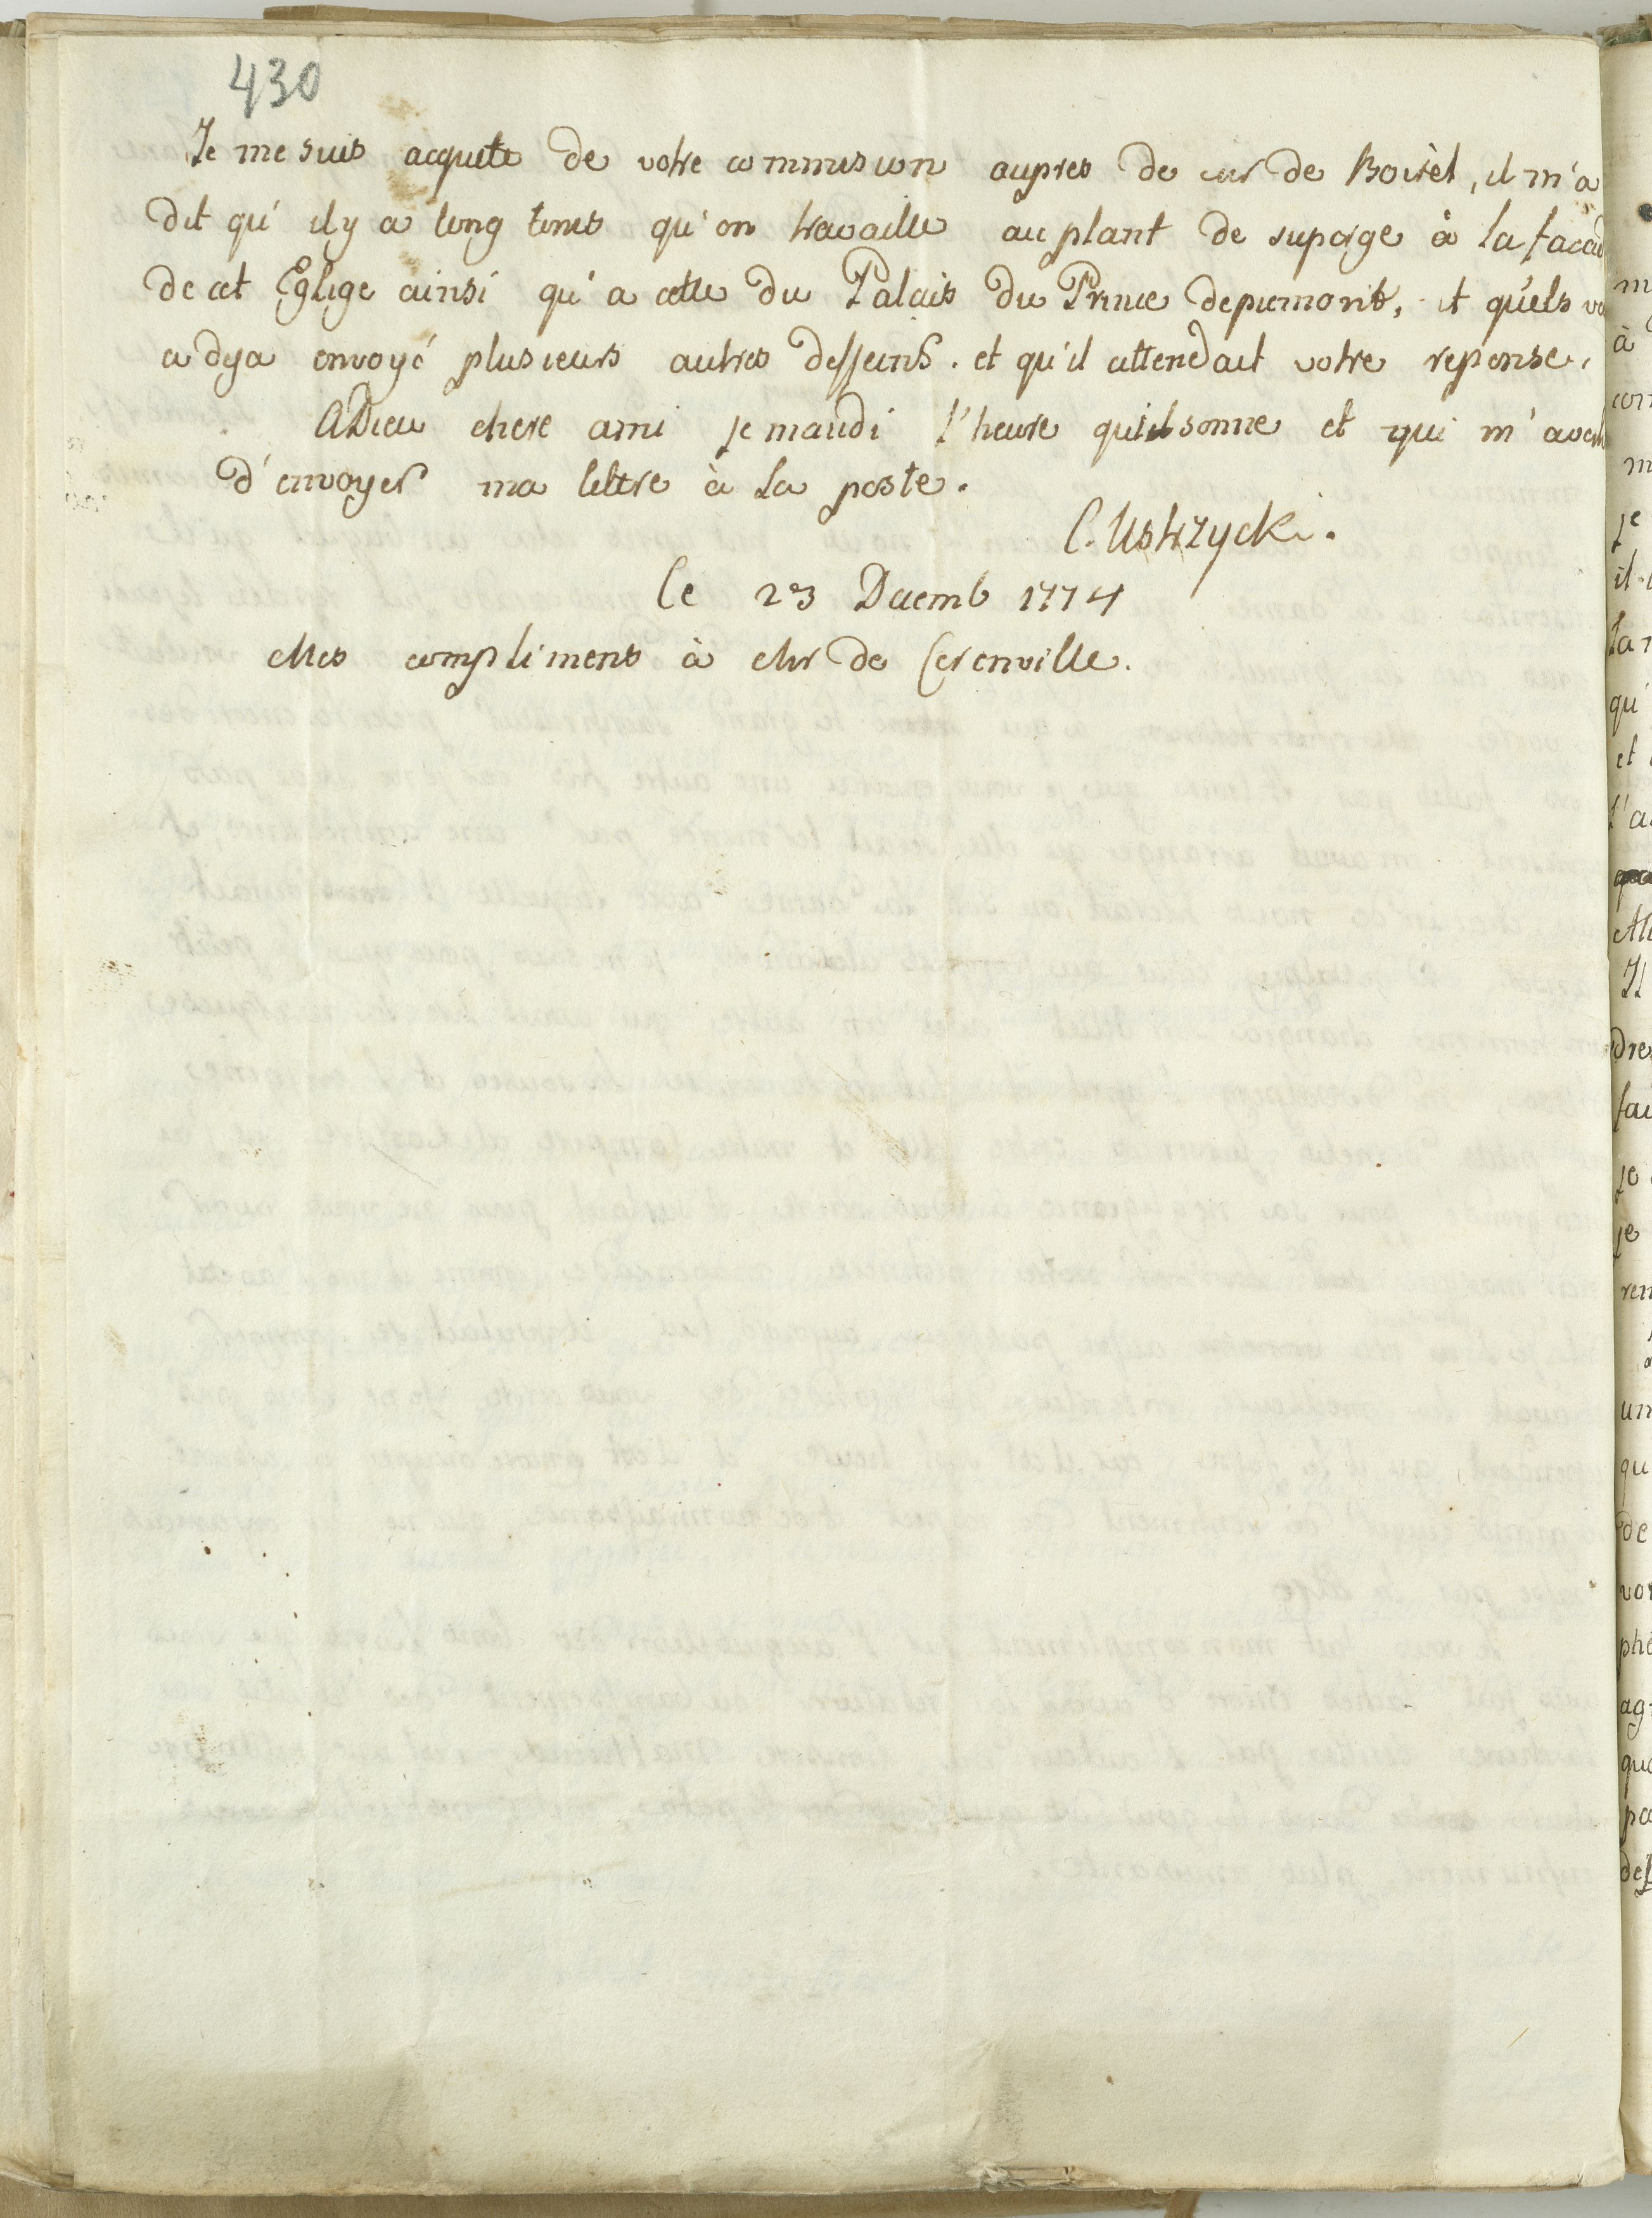 430
Je me suis acquite de votre commision aupres de mr de Boirel, il m'a
dit qu' il y a long tems qu'on travaille au plant de superge à la facad
de cet Eglige ainsi qu'a celle du Palais du Prince depiemont, et qu'els vo
a deja envoyé plusieurs autres desseins. et qu'il attendait votre reponse.
ADieu chere ami je maudi l'heure qui sonne et qui m'avert
d'envoyer ma lettre à la poste.
C. Ustrzycki.
Ce 23 Decemb 1774
Mes compliments à Mr de Cerenville.